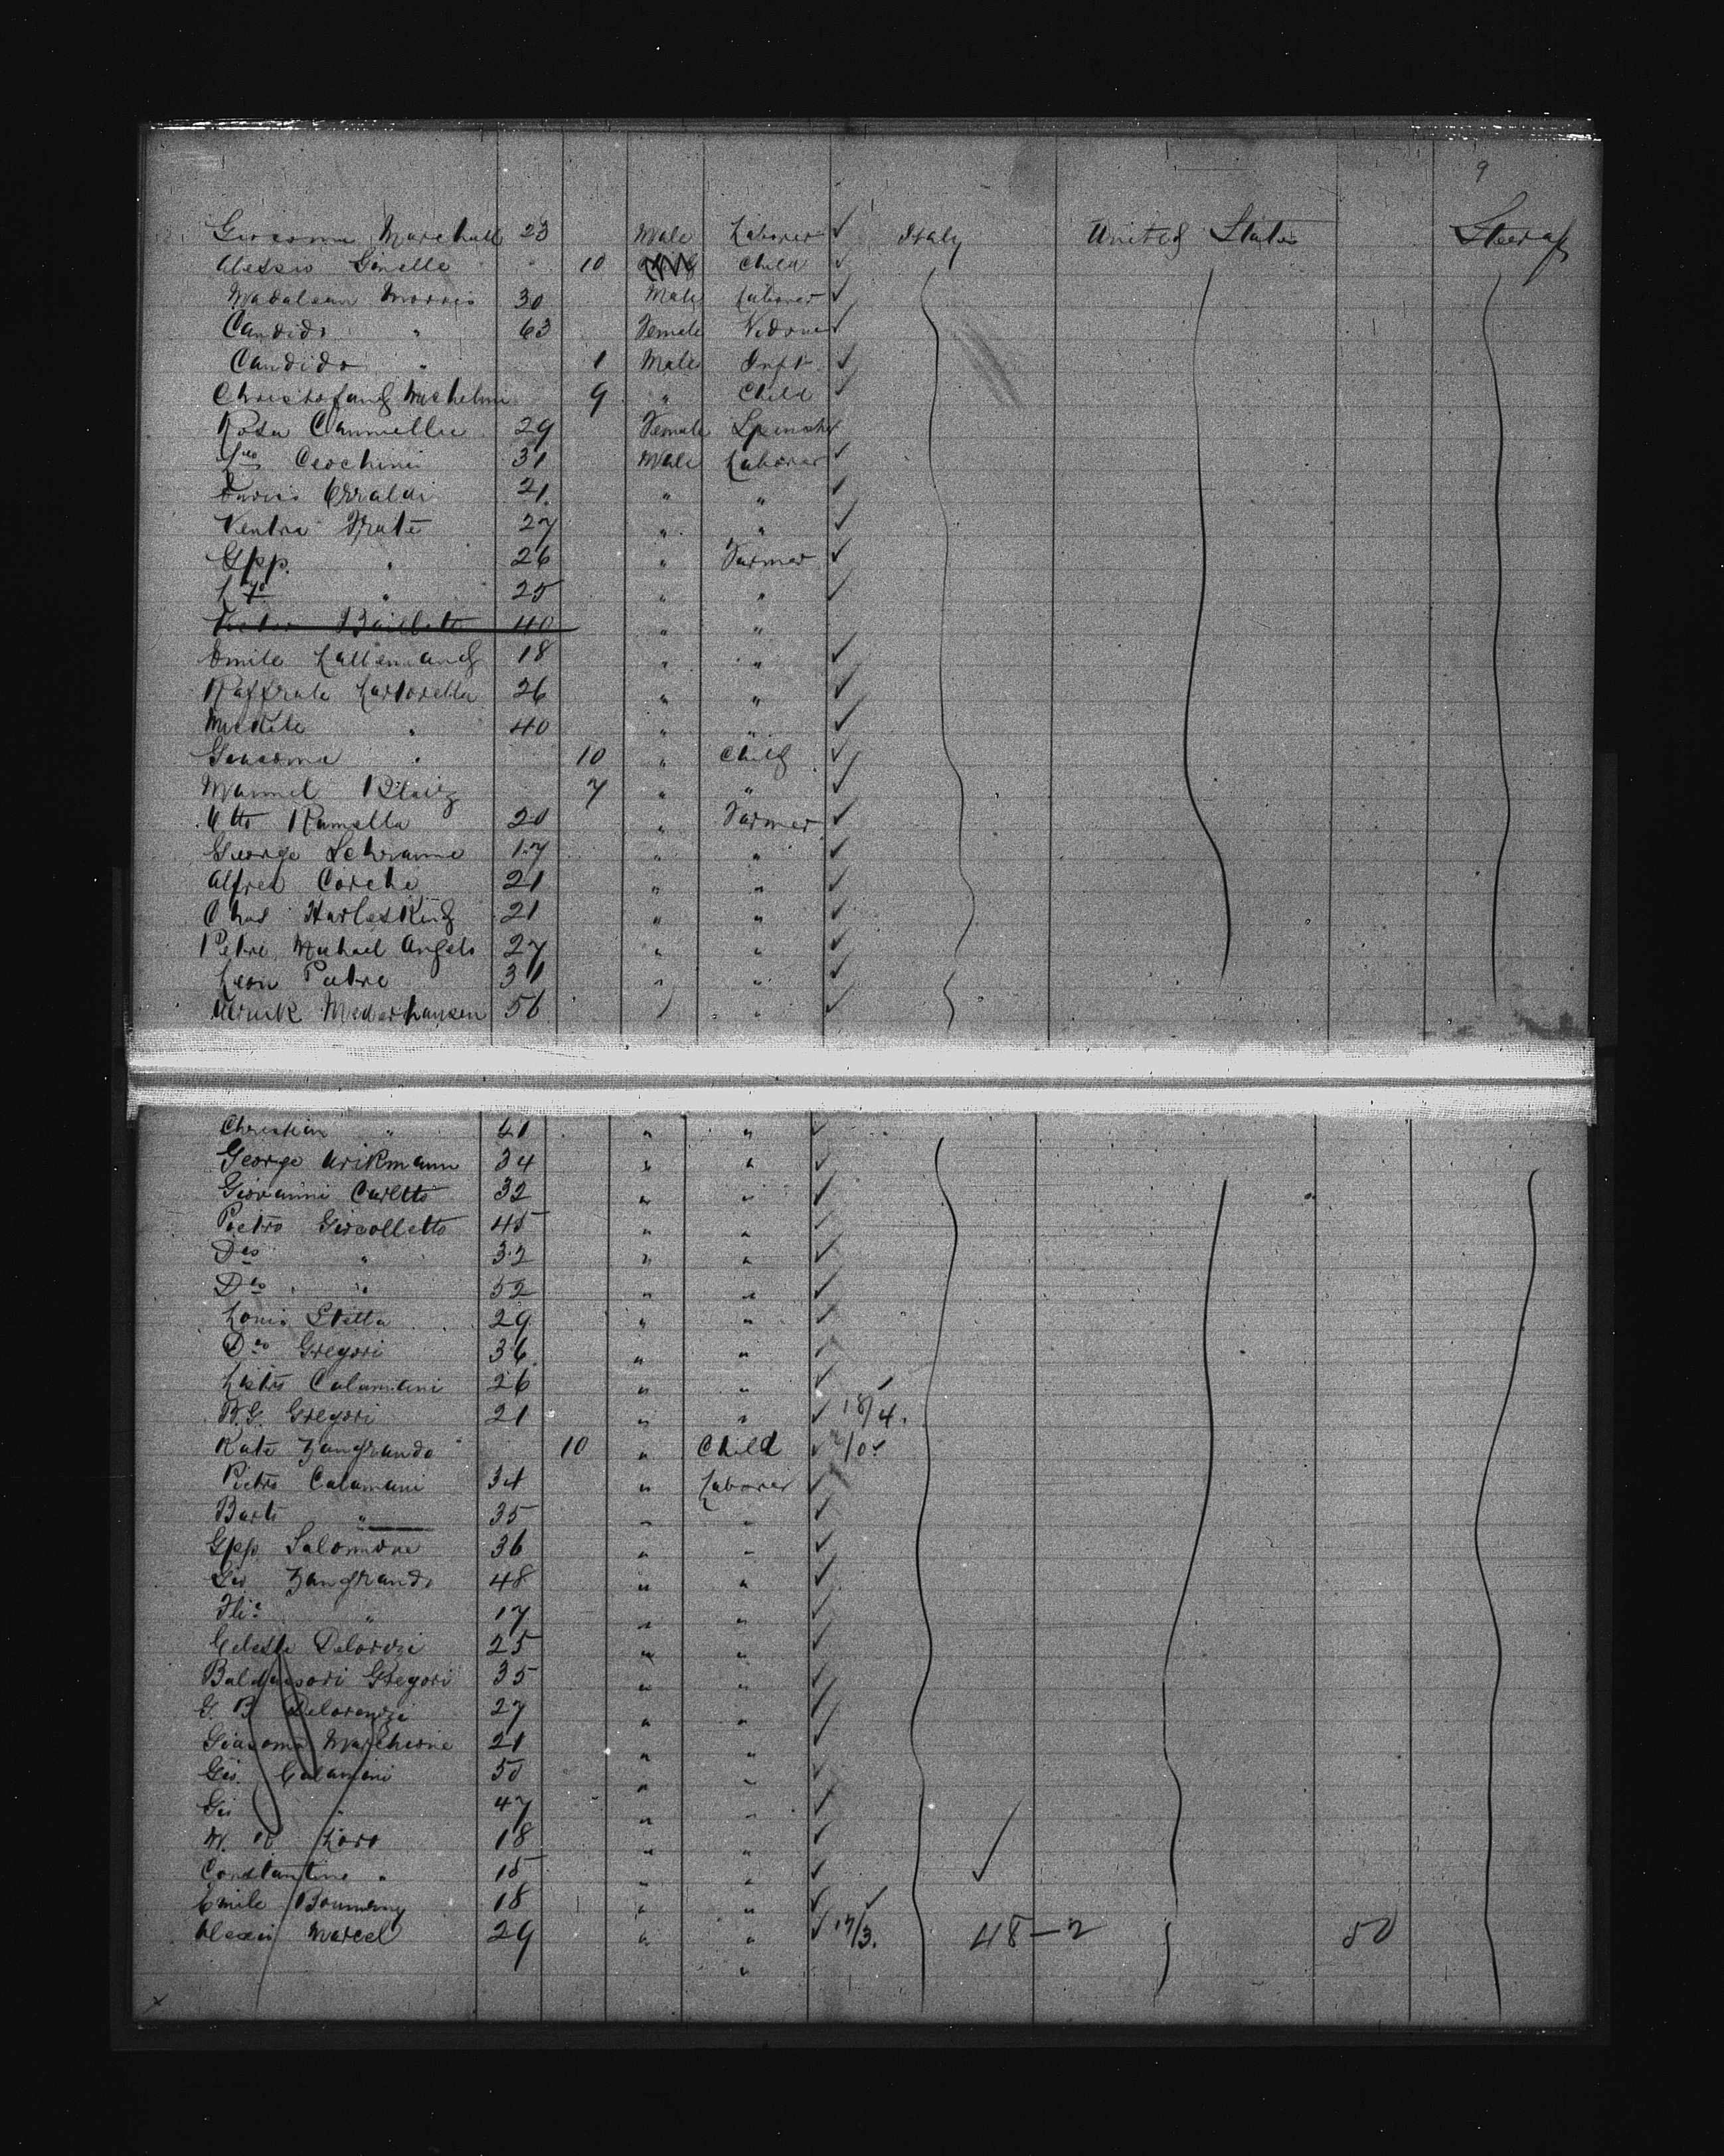 9
Giacomo Marchall 23 Male Laborer ✓ Italy United States Steerage
Alessio Ginelle " 10 Child ✓
Madalean Morris 30 Male Laborer ✓
Candido " 63 Female ✓
Candido " 1 Male Inft ✓
Christofand Michelini 9 " Child ✓
Rosa Cannellie 29 Female Spinster ✓
Ceochini 31 Male Laborer ✓
Erraldi 21 " " ✓
Ventra Frate 27 " " ✓
Gpp. " 26 " Farmer ✓
" 25 " " ✓
40 " "
Emile Lallemand 18 " " ✓
Raffaele Lartorella 26 " " ✓
Michele " 40 " " ✓
Giacoma " 10 " Child ✓
Manuel 7 " " ✓
Otto Ramella 20 " Farmer ✓
George Schramme 17 " " ✓
Alfred Corche 21 " " ✓
Chas Harlesking 21 " " ✓
Petre Michael Angelo 27 " " ✓
Leon Pietre 31 " " ✓
Mederhausen 56 " ✓
Christian " " " ✓
George Arikmann 34 " " ✓
Giovanni Carletto 32 " " ✓
Pietro Giacolletto 45 " " ✓
Do " 32 " " ✓
Do " 52 " " ✓
Louis Stella 29 " " ✓
Do Gregori 36 " " ✓
Calamani 26 " " ✓
B. G. Gregori 21 " " ✓ 18/4.
Kate Zangrando 10 " Child ✓
Pietro Calamani 34 " Laborer ✓
Barto " 35 " " ✓
Gpp. Salomone 36 " " ✓
Gio Zangrando 48 " " ✓
" 17 " " ✓
Celeste Delorenzi 25 " " ✓
Baldassori Gregori 35 " " ✓
G. B. Delorenze 27 " " ✓
Giacomo Marchione 21 " " ✓
Gio. Calamani 50 " " ✓
Gio " 47 " " ✓
Loro 18 " " ✓
Constantine " 15 " " ✓
Emile 18 " " ✓
Alexis Marcel 29 " " ✓ 17/3. 48-2 50
"